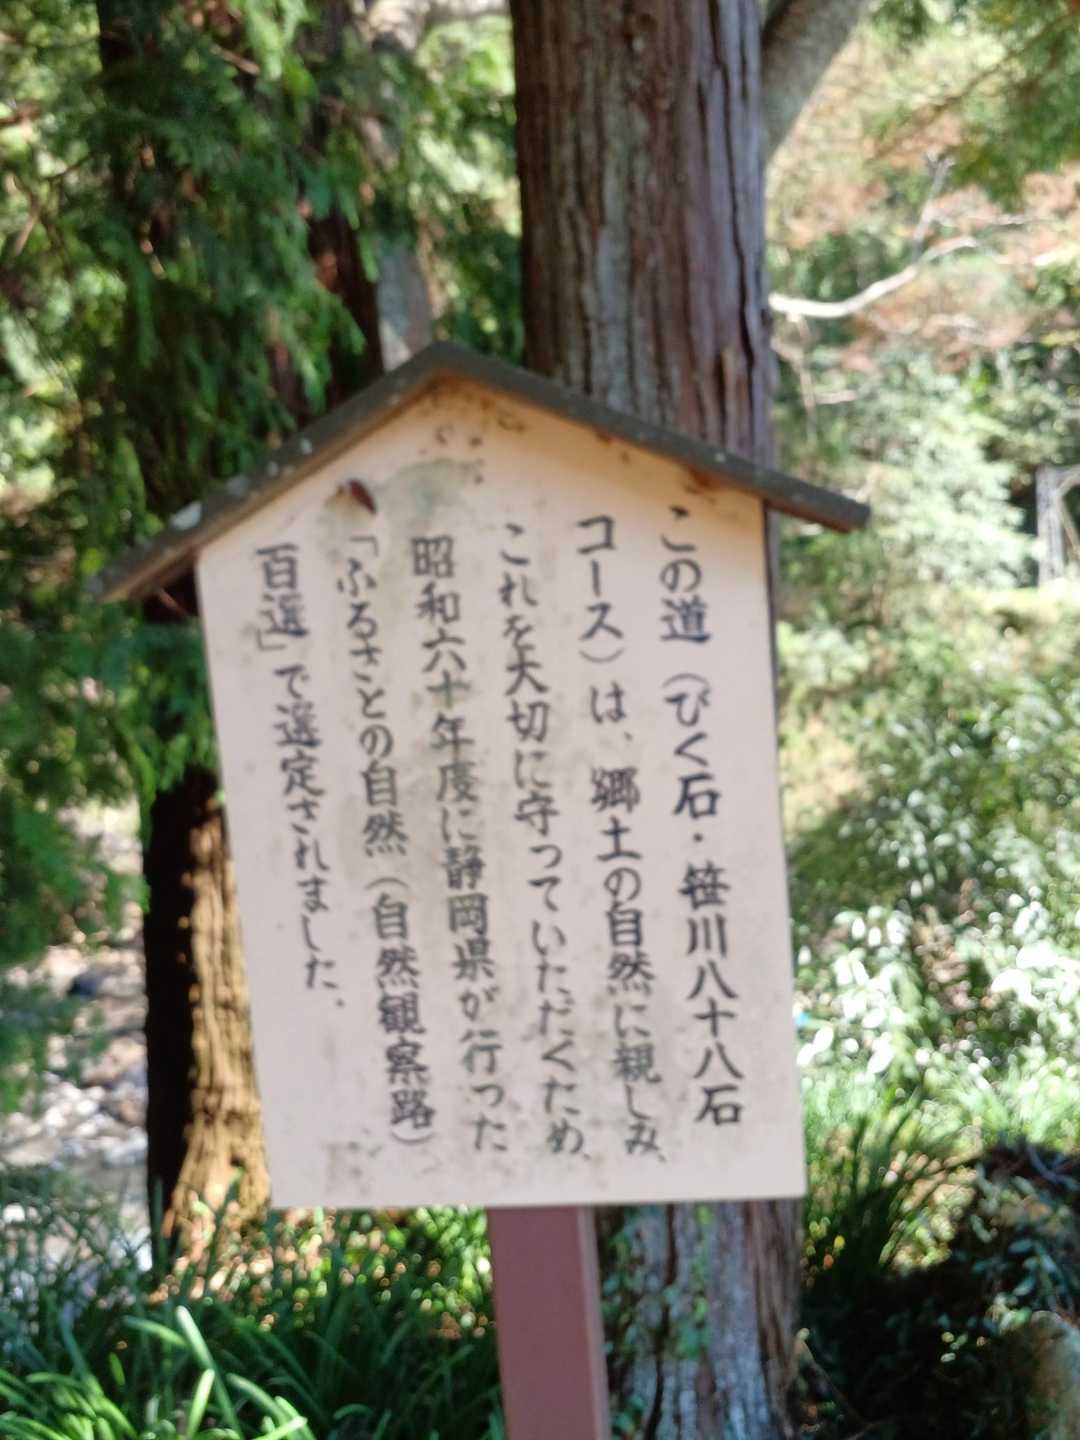 この道（びく石・笹川八十八石
コース）は、郷土の自然に親しみ、
これを大切に守っていただくため、
昭和六十年度に静岡県が行った
「ふるさとの自然（自然観察路）
百選」で選定されました。